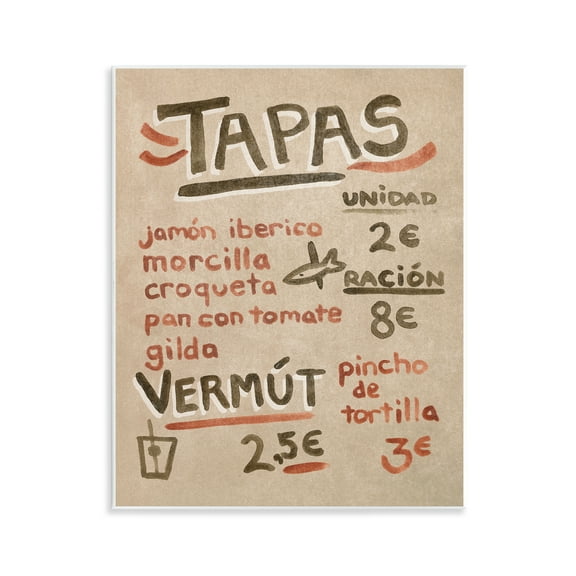 TAPAS
UNIDAD
2€
jamón iberico
morcilla
croqueta
pan con tomate
gilda
RACIÓN
8€
VERMÚT
2,5€
pincho
de
tortilla
3€